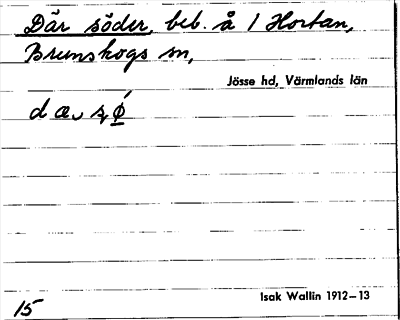 Där söder, beb. å 1 Hortan,
Brunskogs sn,
Jösse hd, Värmlands län
Isak Wallin 1912–13
15